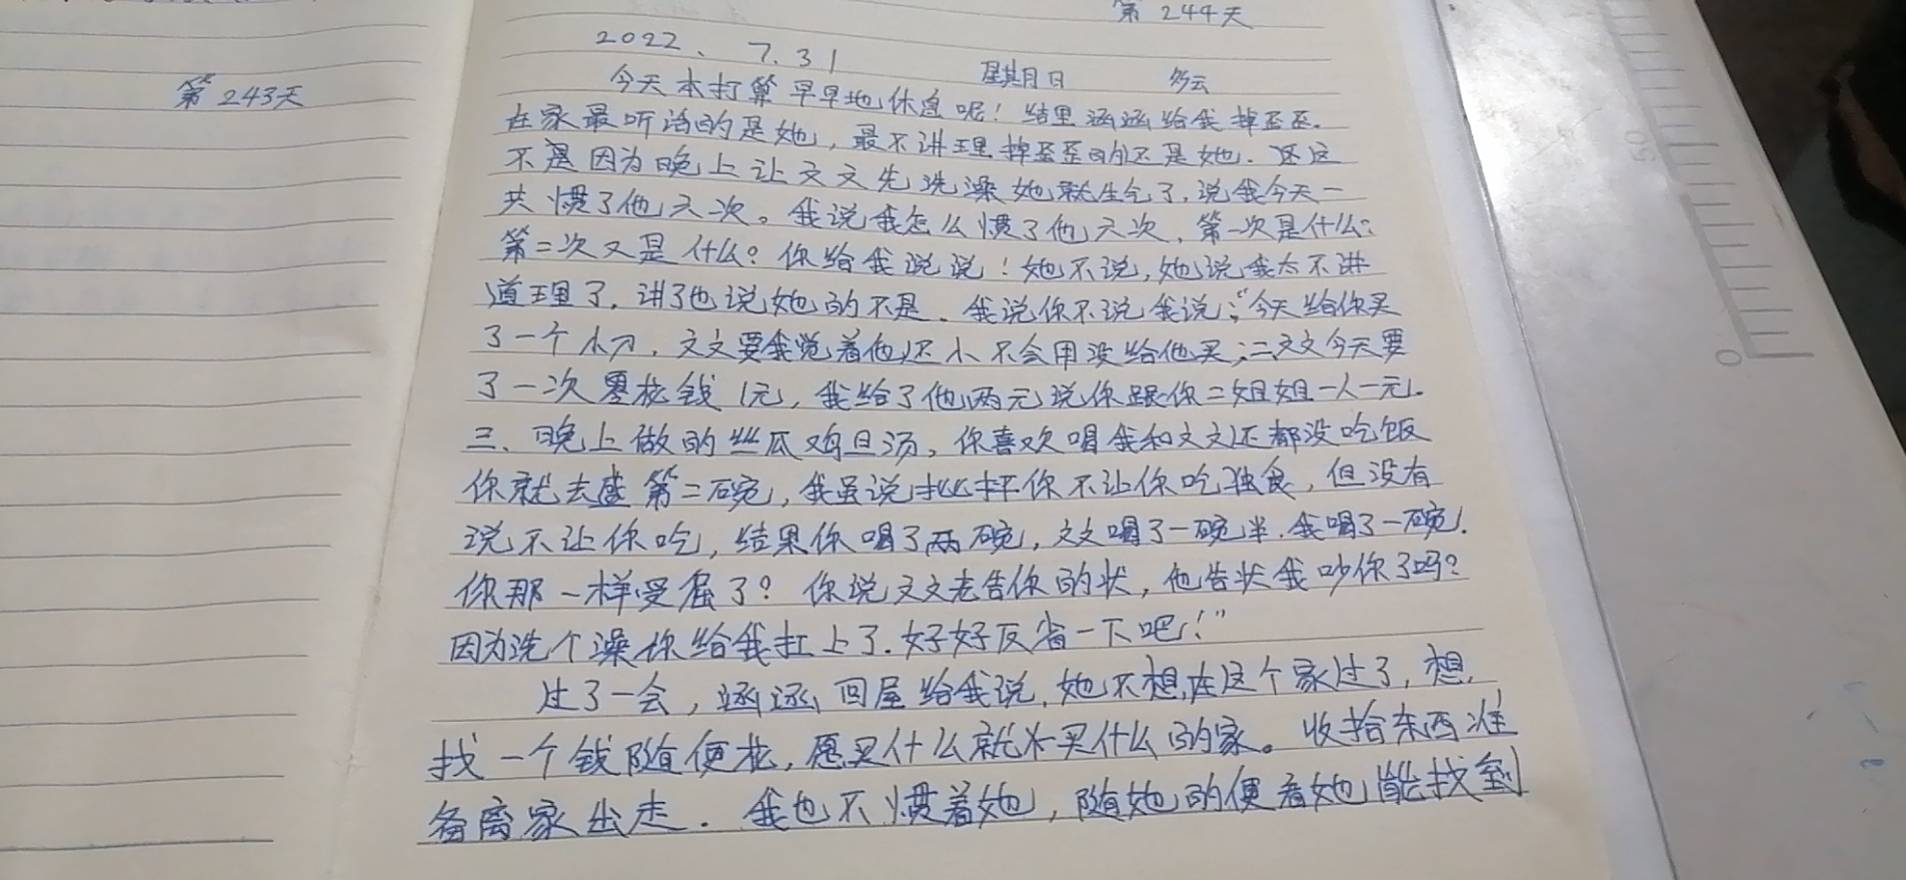 第 243天
第 244天
2022、7.31 星期日 多云
今天本打算早早地休息呢！结果涵涵给我掉歪歪.
在家最听话的是她，最不讲理掉歪歪的还是她. 还这
不是因为晚上让文文先洗澡她就生气了, 说我今天一
共惯了他六次。我说我怎么惯了他六次, 第一次是什么;
第二次又是什么? 你给我说说！她不说, 她说我太不讲
道理了. 讲了他说她的不是. 我说你不说我说:“今天给你买
了一个小刀, 文文要我觉着他还小不会用没给他买;二文文今天要
了一次零花钱1元, 我给了他两元说你跟你二姐姐一人一元.
三、晚上做的丝瓜鸡旦汤, 你喜欢喝我和文文还都没吃饭
你就去盛第二碗, 我虽说批评你不让你吃独食, 但没有
说不让你吃, 结果你喝了两碗, 文文喝了一碗半. 我喝了一碗.
你那一样受屈了? 你说文文老告你的状, 他告状我吵你了吗?
因为洗个澡你给我扛上了. 好好反省一下吧!”
过了一会, 涵涵回屋给我说, 她不想在这个家过了, 想
找一个钱随便花, 愿买什么就买什么的家。收拾东西准
备离家出走. 我也不惯着她, 随她的便看她能找到